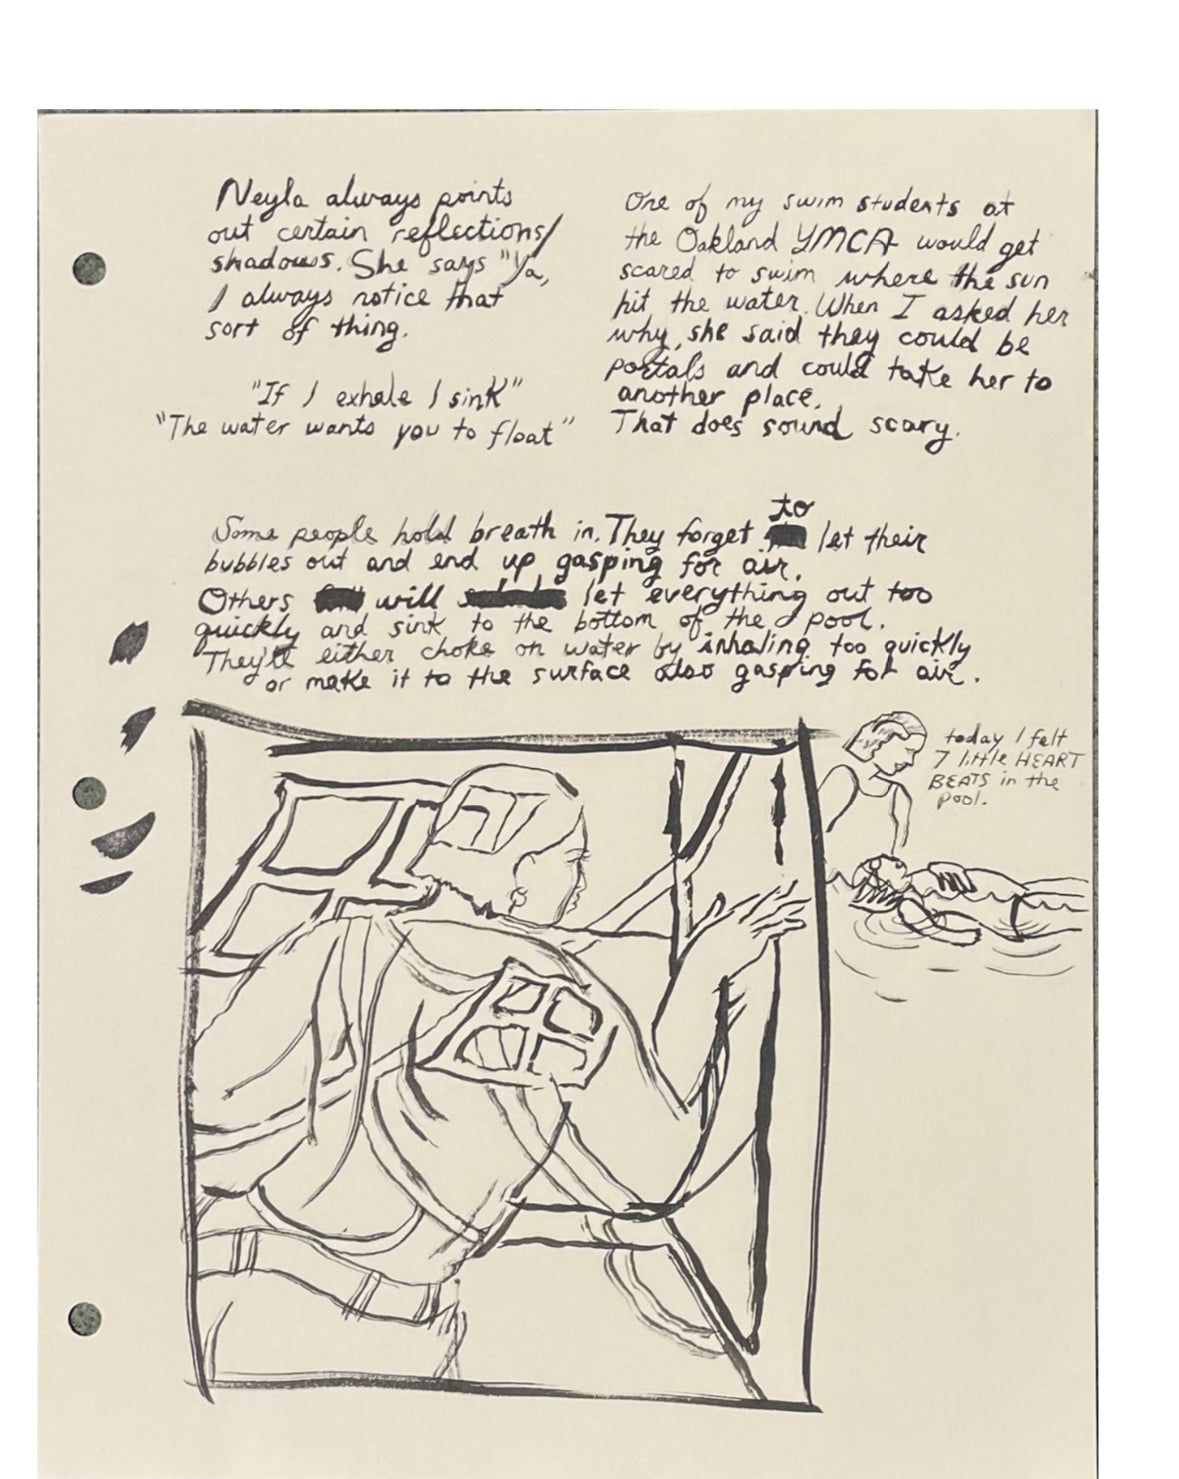 Neyla always points
out certain reflections/
shadows. She says "Ya,
I always notice that
sort of thing.
"If I exhale I sink"
"The water wants you to float"
One of my swim students at
the Oakland YMCA would get
scared to swim where the sun
hit the water. When I asked her
why, she said they could be
portals and could take her to
another place.
That does sound scary.
Some people hold breath in. They forget to let their
bubbles out and end up gasping for air.
Others will let everything out too
quickly and sink to the bottom of the pool.
They'll either choke on water by inhaling too quickly
or make it to the surface also gasping for air.
today I felt
7 little HEART
BEATS in the
pool.